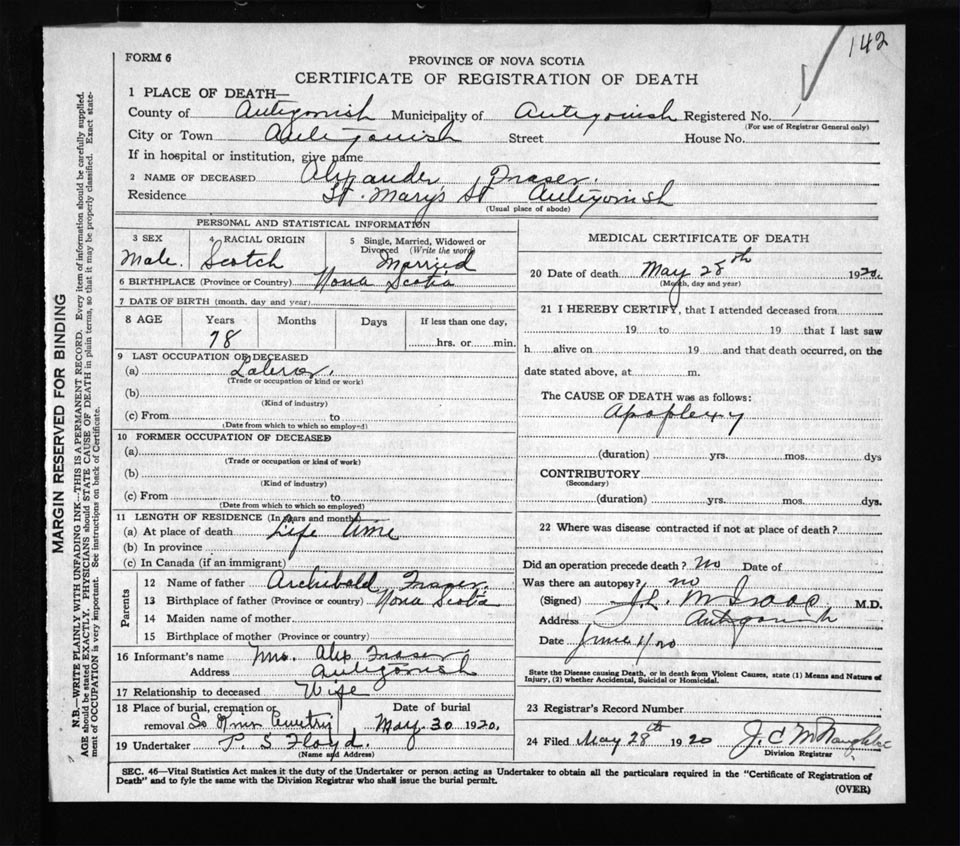 142
FORM 6
PROVINCE OF NOVA SCOTIA
CERTIFICATE OF REGISTRATION OF DEATH
1 PLACE OF DEATH—
County of Antigonish Municipality of Antigonish Registered No.
(For use of Registrar General only)
City or Town Antigonish Street House No.
If in hospital or institution, give name
2 NAME OF DECEASED Alexander Fraser.
Residence St. Mary's St Antigonish
(Usual place of abode)
PERSONAL AND STATISTICAL INFORMATION
3 SEX Male.
4 RACIAL ORIGIN Scotch
5 Single, Married, Widowed or Divorced (Write the word) Married
6 BIRTHPLACE (Province or Country) Nova Scotia
7 DATE OF BIRTH (month, day and year)
8 AGE Years Months Days If less than one day,
78 hrs. or min.
9 LAST OCCUPATION OF DECEASED
(a) Laborer.
(Trade or occupation or kind or work)
(b)
(Kind of industry)
(c) From to
(Date from which to which so employed)
10 FORMER OCCUPATION OF DECEASED
(a)
(Trade or occupation or kind of work)
(b)
(Kind of industry)
(c) From to
(Date from which to which so employed)
11 LENGTH OF RESIDENCE (In years and months)
(a) At place of death Life time
(b) In province
(c) In Canada (if an immigrant)
Parents
12 Name of father Archibald Fraser.
13 Birthplace of father (Province or country) Nova Scotia
14 Maiden name of mother
15 Birthplace of mother (Province or country)
16 Informant's name Mrs. Alex Fraser
Address Antigonish
17 Relationship to deceased Wife
18 Place of burial, cremation or Date of burial
removal Cemetry May 30 1920.
19 Undertaker P. S Floyd.
(Name and Address)
MEDICAL CERTIFICATE OF DEATH
20 Date of death May 28th 1920.
(Month, day and year)
21 I HEREBY CERTIFY, that I attended deceased from
19 to 19 that I last saw
h alive on 19 and that death occurred, on the
date stated above, at m.
The CAUSE OF DEATH was as follows:
Apoplexy
(duration) yrs. mos. dys
CONTRIBUTORY
(Secondary)
(duration) yrs. mos. dys.
22 Where was disease contracted if not at place of death?
Did an operation precede death? No Date of
Was there an autopsy? no
(Signed) J. L. McIsaac M.D.
Address Antigonish
Date June 1/20
State the Disease causing Death, or in death from Violent Causes, state (1) Means and Nature of
Injury, (2) whether Accidental, Suicidal or Homicidal.
23 Registrar's Record Number
24 Filed May 28th 1920 J. C McNaughton
Division Registrar
SEC. 46—Vital Statistics Act makes it the duty of the Undertaker or person acting as Undertaker to obtain all the particulars required in the "Certificate of Registration of
Death" and to fyle the same with the Division Registrar who shall issue the burial permit.
(OVER)
MARGIN RESERVED FOR BINDING
N.B.—WRITE PLAINLY WITH UNFADING INK—THIS IS A PERMANENT RECORD. Every item of information should be carefully supplied.
AGE should be stated EXACTLY. PHYSICIANS should STATE CAUSE OF DEATH in plain terms, so that it may be properly classified. Exact state-
ment of OCCUPATION is very important. See instructions on back of Certificate.